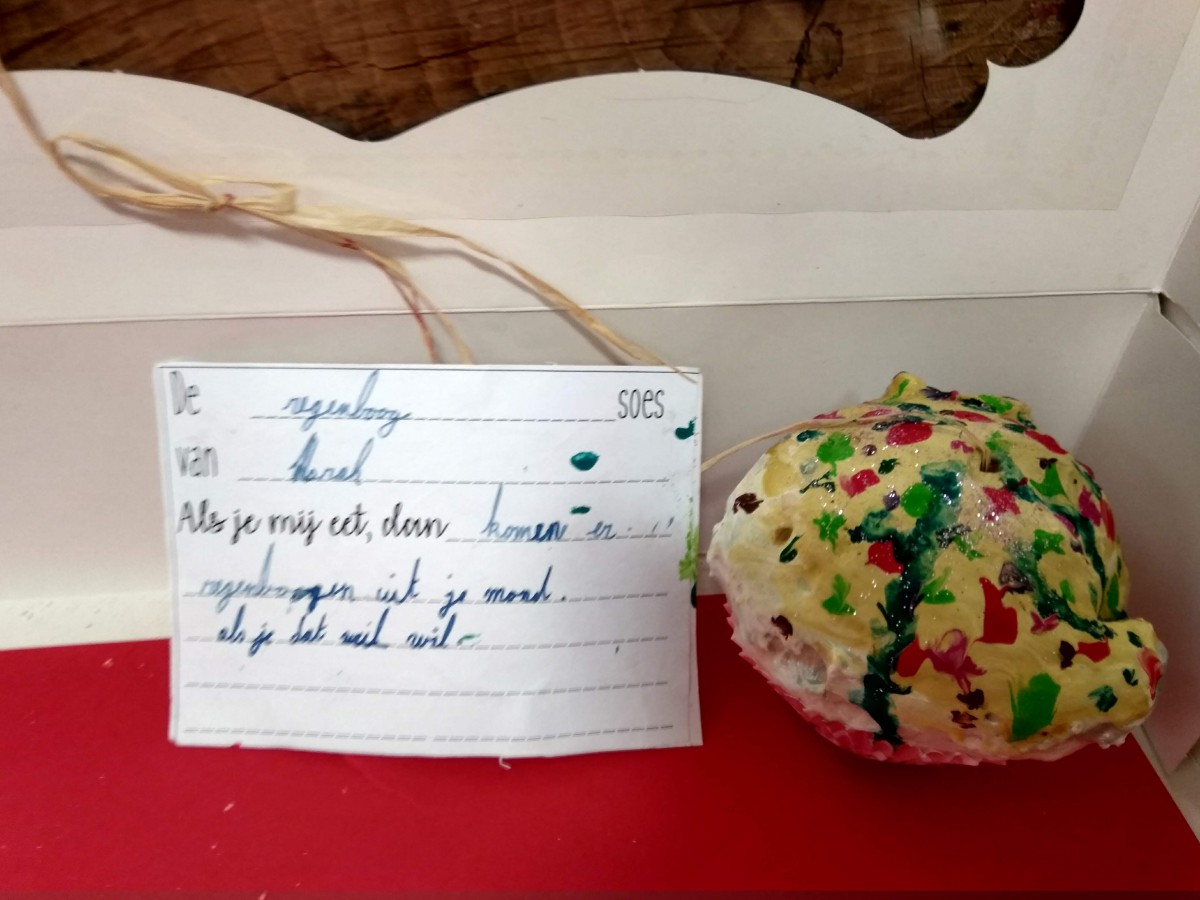 De regenboog soes
van
Als je mij eet, dan komen er
regenboogen uit je mond.
als je dat wil